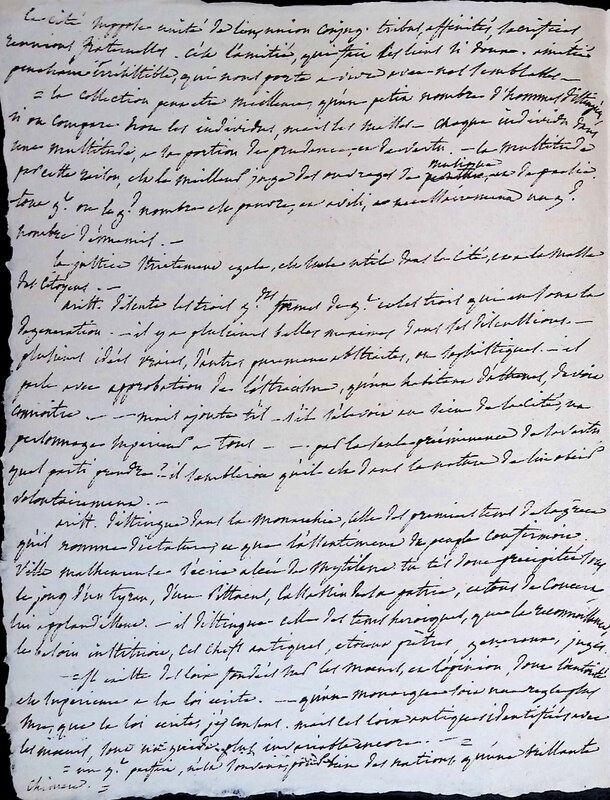 la cité suppose unité de lieu, union conjug. tribus, affinités, sacrifices
reunions fraternelles. c'est l'amitié qui fait des liens si doux. amitié
penchant irrésistible, qui nous porte a vivre avec nos semblables —
= la collection peut etre meilleure, qu'un petit nombre d'hommes distingués,
si on compare non les individus, mais les masses — chaque individu dans
une multitude, a sa portion de prudence, et de vertu. — la multitude
par cette raison, est le meilleur juge des ouvrages de musique, et de poesie.
tout g.t ou le g.d nombre est pauvre, et avili, a necessairement un g.d
nombre d'ennemis. —
la justice strictement egale, est seule utile dans la cité, et a la masse
des citoyens. —
arist. discute les trois formes de g.t et les trois qui en sont la
degeneration. — il y a plusieurs belles maximes dans ses discussions. —
plusieurs idées vraies, d'autres purement abstraites, ou sophistiques. — il
parle avec approbation de l'ostracisme, qu'un habitant d'athenes, devoit
connoitre. — — mais ajoute t'il — s'il s'élevoit au sein de la cité, un
personnage superieur a tous — — par la seule prééminence de la vertu
quel parti prendre? il sembleroit qu'il est dans la nature de lui obeir
volontairement. —
arist. distingue dans la monarchie, celle des premiers tems de la grèce
qu'il nomme dictature, et que l'assentiment du peuple confirmoit.
Ville malheureuse s'écrie alcée de mytilene tu t'es donc precipitée sous
le joug d'un tyran, d'un Pittacus, l'assassin de sa patrie, et tous de concert
lui applaudissent. — il distingue celle des tems heroiques, que la reconnoissance
le besoin instituerent, ces chefs antiques, etoient prêtres, generaux, juges.
= Il existe des loix fondées sur les moeurs, et l'opinion, dont l'autorité
est superieure a la loi ecrite. — qu'un monarque soit une regle plus
sure, que la loi ecrite, j'y consens. mais ces loix antiques identifiées avec
les moeurs, sont un guide plus invariable encore. — =
= un g.t parfait, n'est la pour le bien des nations qu'une brillante
chimere. =